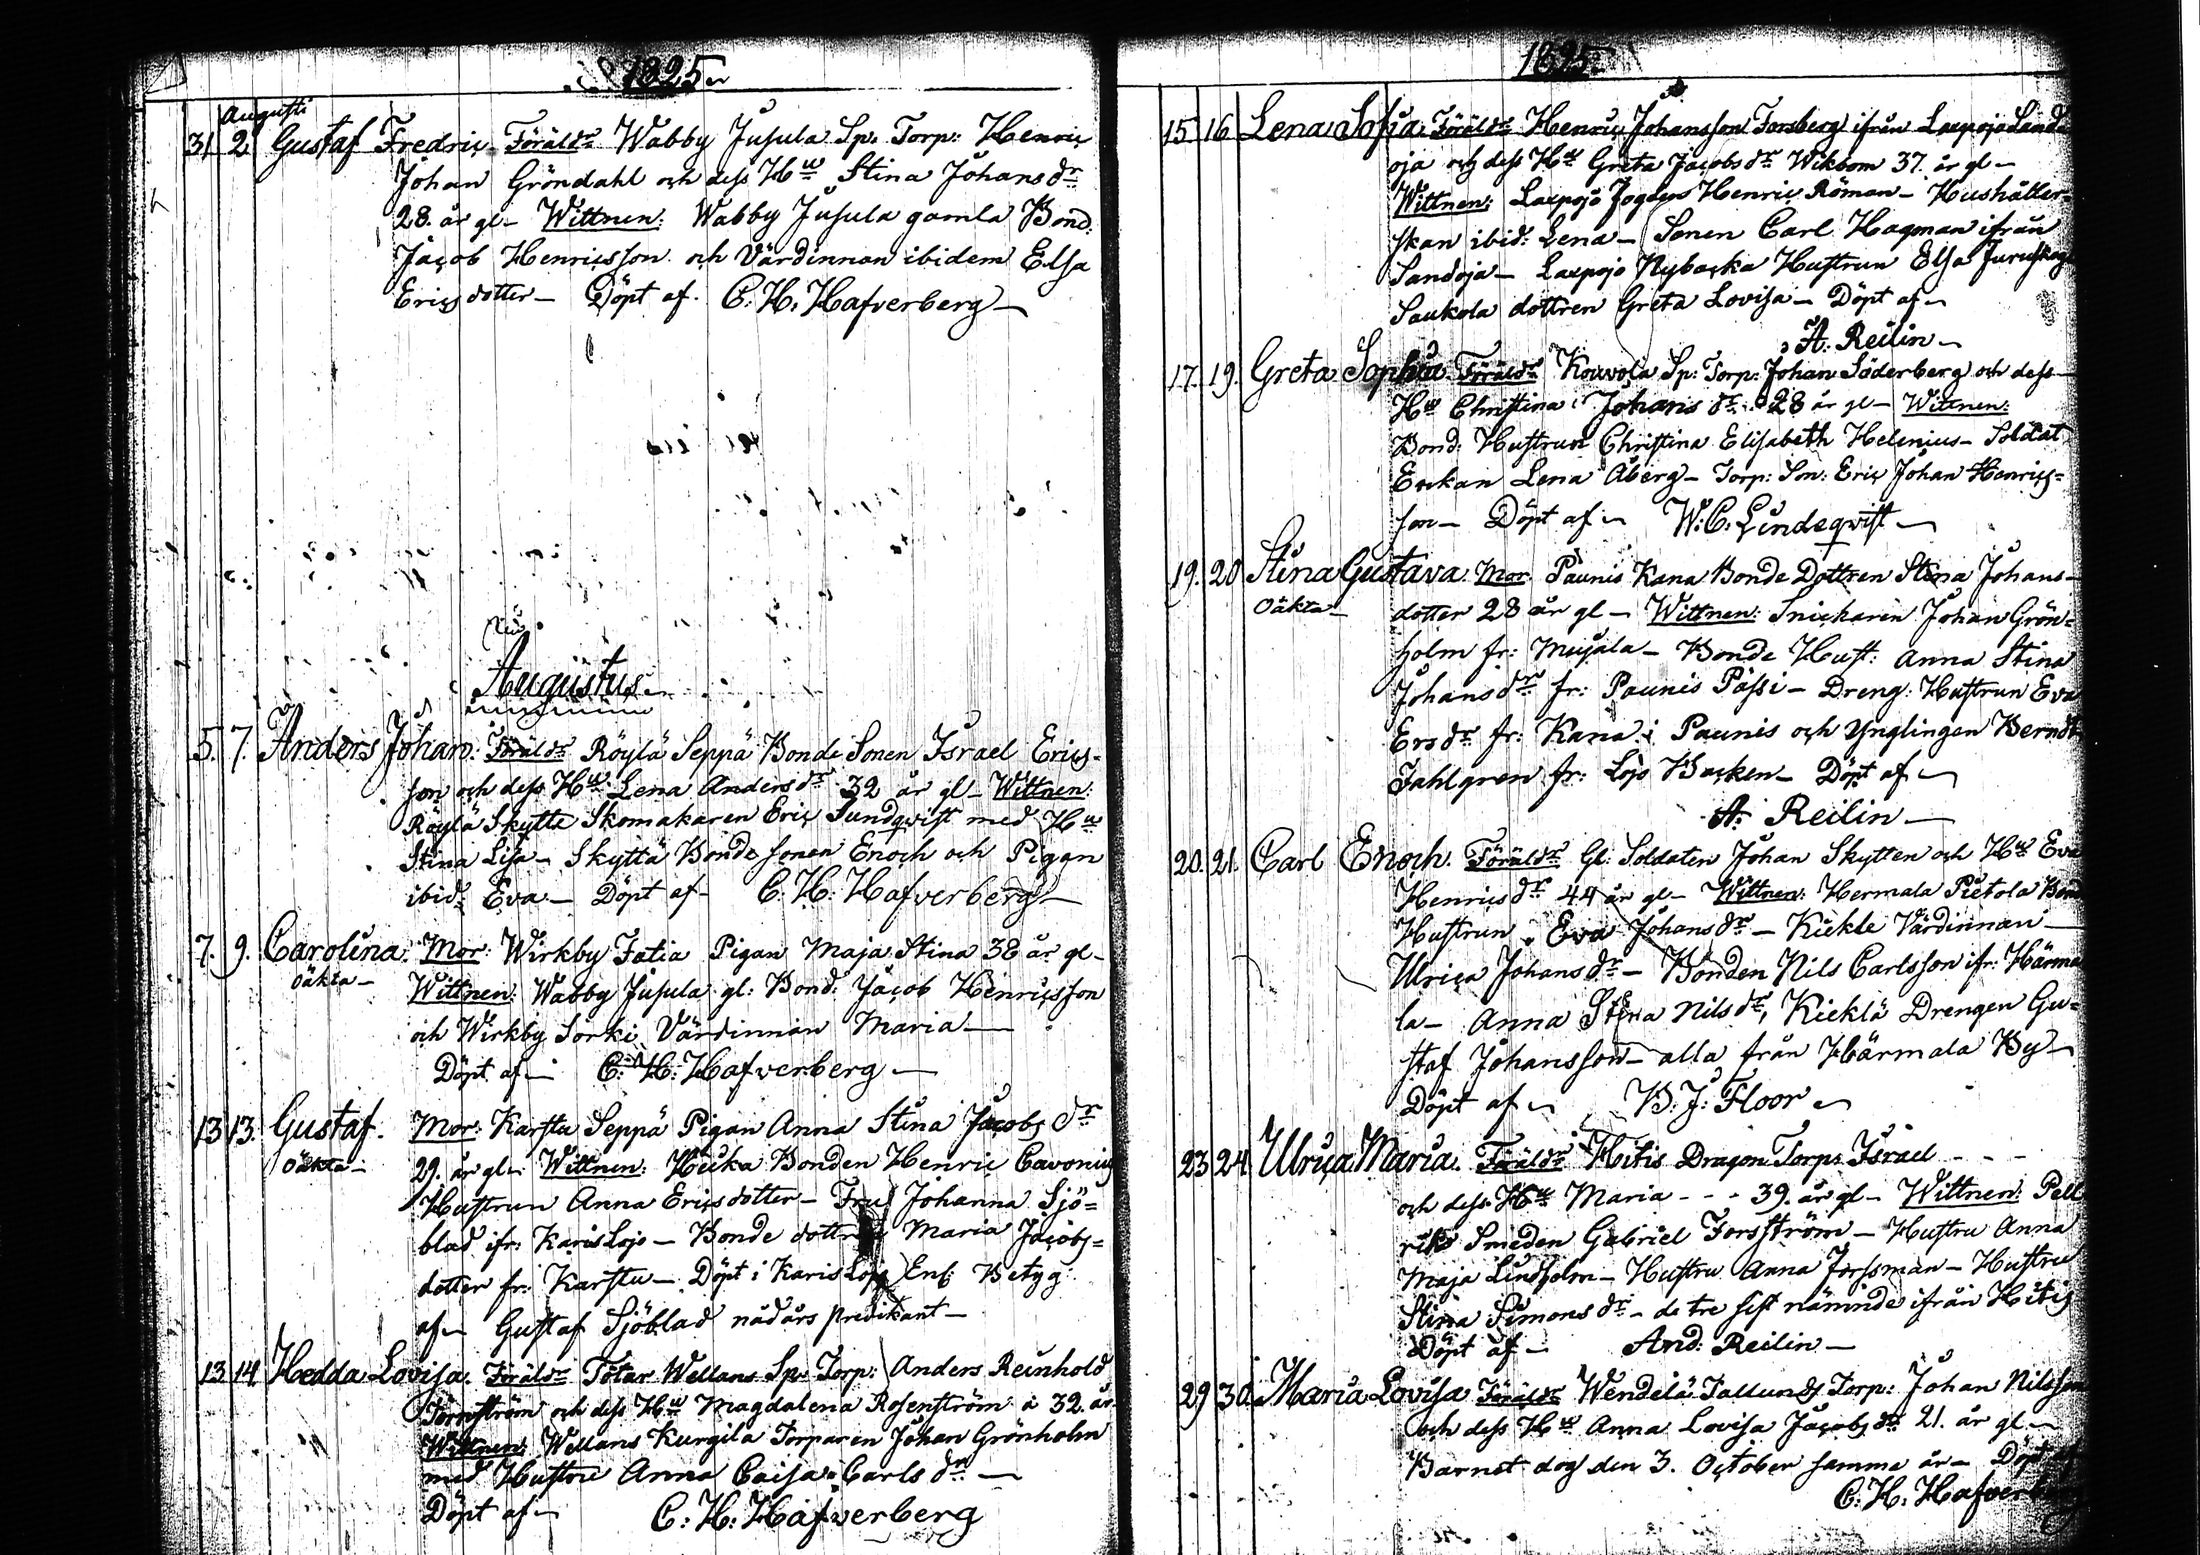 1825
Augusti
31 2 Gustaf Fredric Föräldr Wabby Jusula Sp. Torp: Henric
Johan Gröndahl och dess Hu Stina Johans dr
28. år gl- Wittnen: Wabby Jusula gamla Bond.
Jacob Henricsson och Värdinnan ibidem Elsa
Erics dotter- Döpt af. C. H. Hafverberg-
Augustus
5. 7. Anders Johan. Föräldr Röylä Seppä Bonde Sonen Israel Erics-
son och dess Hu Lena Anders dr 32 år gl- Wittnen:
Röylä Skytte Skomakaren Eric Sundqvist med Hu
Stina Lisa- Skyttä Bonde sonen Enoch och Pigan
ibid: Eva- Döpt af- C. H. Hafverberg-
7. 9. Carolina. Mor: Wirkby Fatia Pigan Maja Stina 38 år gl-
oäkta- Wittnen: Wabby Jusula gl: Bond: Jacob Henricsson
och Wirkby Sorki Värdinnan Maria-
Döpt af- C: H: Hafverberg-
13 13. Gustaf. Mor: Karstu Seppä Pigan Anna Stina Jacobs dr
oäkta- 29. år gl- Wittnen: Bonden Henric Cavonius
Hustrun Anna Erics dotter- Fru Johanna Sjö=
blad ifr: Karis Lojo- Bonde dottren Maria Jacobs=
dotter fr: Karstu- Döpt i Karis Lojo Enl: Betyg
af- Gustaf Sjöblad nådårs predikant-
13 14 Hedda Lovisa. Föräldr Tötar Wellans Sp. Torp: Anders Reinhold
Törnström och dess Hu Magdalena Rosenström á 32. år
Wittnen: Wellans Kurgila Torparen Johan Grönholm
med Hustru Anna Caisa Carls dr-
Döpt af- C: H: Hafverberg
1825
15. 16 Lena Sofia. Föräldr Henric Johansson Forsberg ifrån Laxpojo Sand
oja och dess Hu Greta Jacobs dr Wikbom 37. år gl-
Wittnen: Laxpojo Henric Röman- Hushåller-
skan ibid: Lena- Sonen Carl Hagman ifrån
Sandoja- Laxpojo Nybacka Hustrun Elsa
Saukola dottren Greta Lovisa- Döpt af-
A. Reilin-
17. 19. Greta Sophia. Föräldr Kouvola Sp: Torp: Johan Söderberg och dess
Hu Christina Johans dr. 28 år gl- Wittnen:
Bond: Hustrun Christina Elisabeth Helenius- Soldat
Enkan Lena Åberg- Torp: Son: Eric Johan Henrics=
son- Döpt af- W: C: Lindeqvist-
19. 20 Stina Gustava. Mor Paunis Kana Bonde Dottren Stina Johans-
oäkta- dotter 28 år gl- Wittnen: Snickaren Johan Grön=
holm fr: Mujala- Bonde Hust: Anna Stina
Johans dr fr: Paunis Passi- Dreng: Hustrun Eva
Ers dr fr: Kana i Paunis och Ynglingen Berndt
Fahlgren fr: Lojo Backen- Döpt af-
A: Reilin-
20. 21. Carl Enoch. Föräldr Gl: Soldaten Johan Skytten och Hu Eva
Henrics dr 44 år gl- Wittnen: Hermala Pietola Bond
Hustrun Eva Johans dr- Kiekle Värdinnan-
Ulrica Johans dr- Bonden Nils Carlsson ifr: Härma
la- Anna Stina Nils dr, Kieklä Drengen Gu=
staf Johansson- alla från Härmala By-
Döpt af- B. J: Floor-
23 24. Ulrica Maria. Föräldr Hitis Dragon Torp: Israel - - -
och dess Hu Maria - - - 39. år gl- Wittnen: Pell
riks Smeden Gabriel Forsström- Hustru Anna
Maja Lindholm- Hustru Anna Forssman- Hustru
Stina Simons dr- de tre sist nämnde ifrån Hitis
Döpt af- And: Reilin-
29 30. Maria Lovisa Föräldr Wendelä Torp: Johan Nilsson
och dess Hu Anna Lovisa Jacobs dr 21. år gl-
Barnet dog den 3. October samma år- Döpt af
C: H: Hafverberg